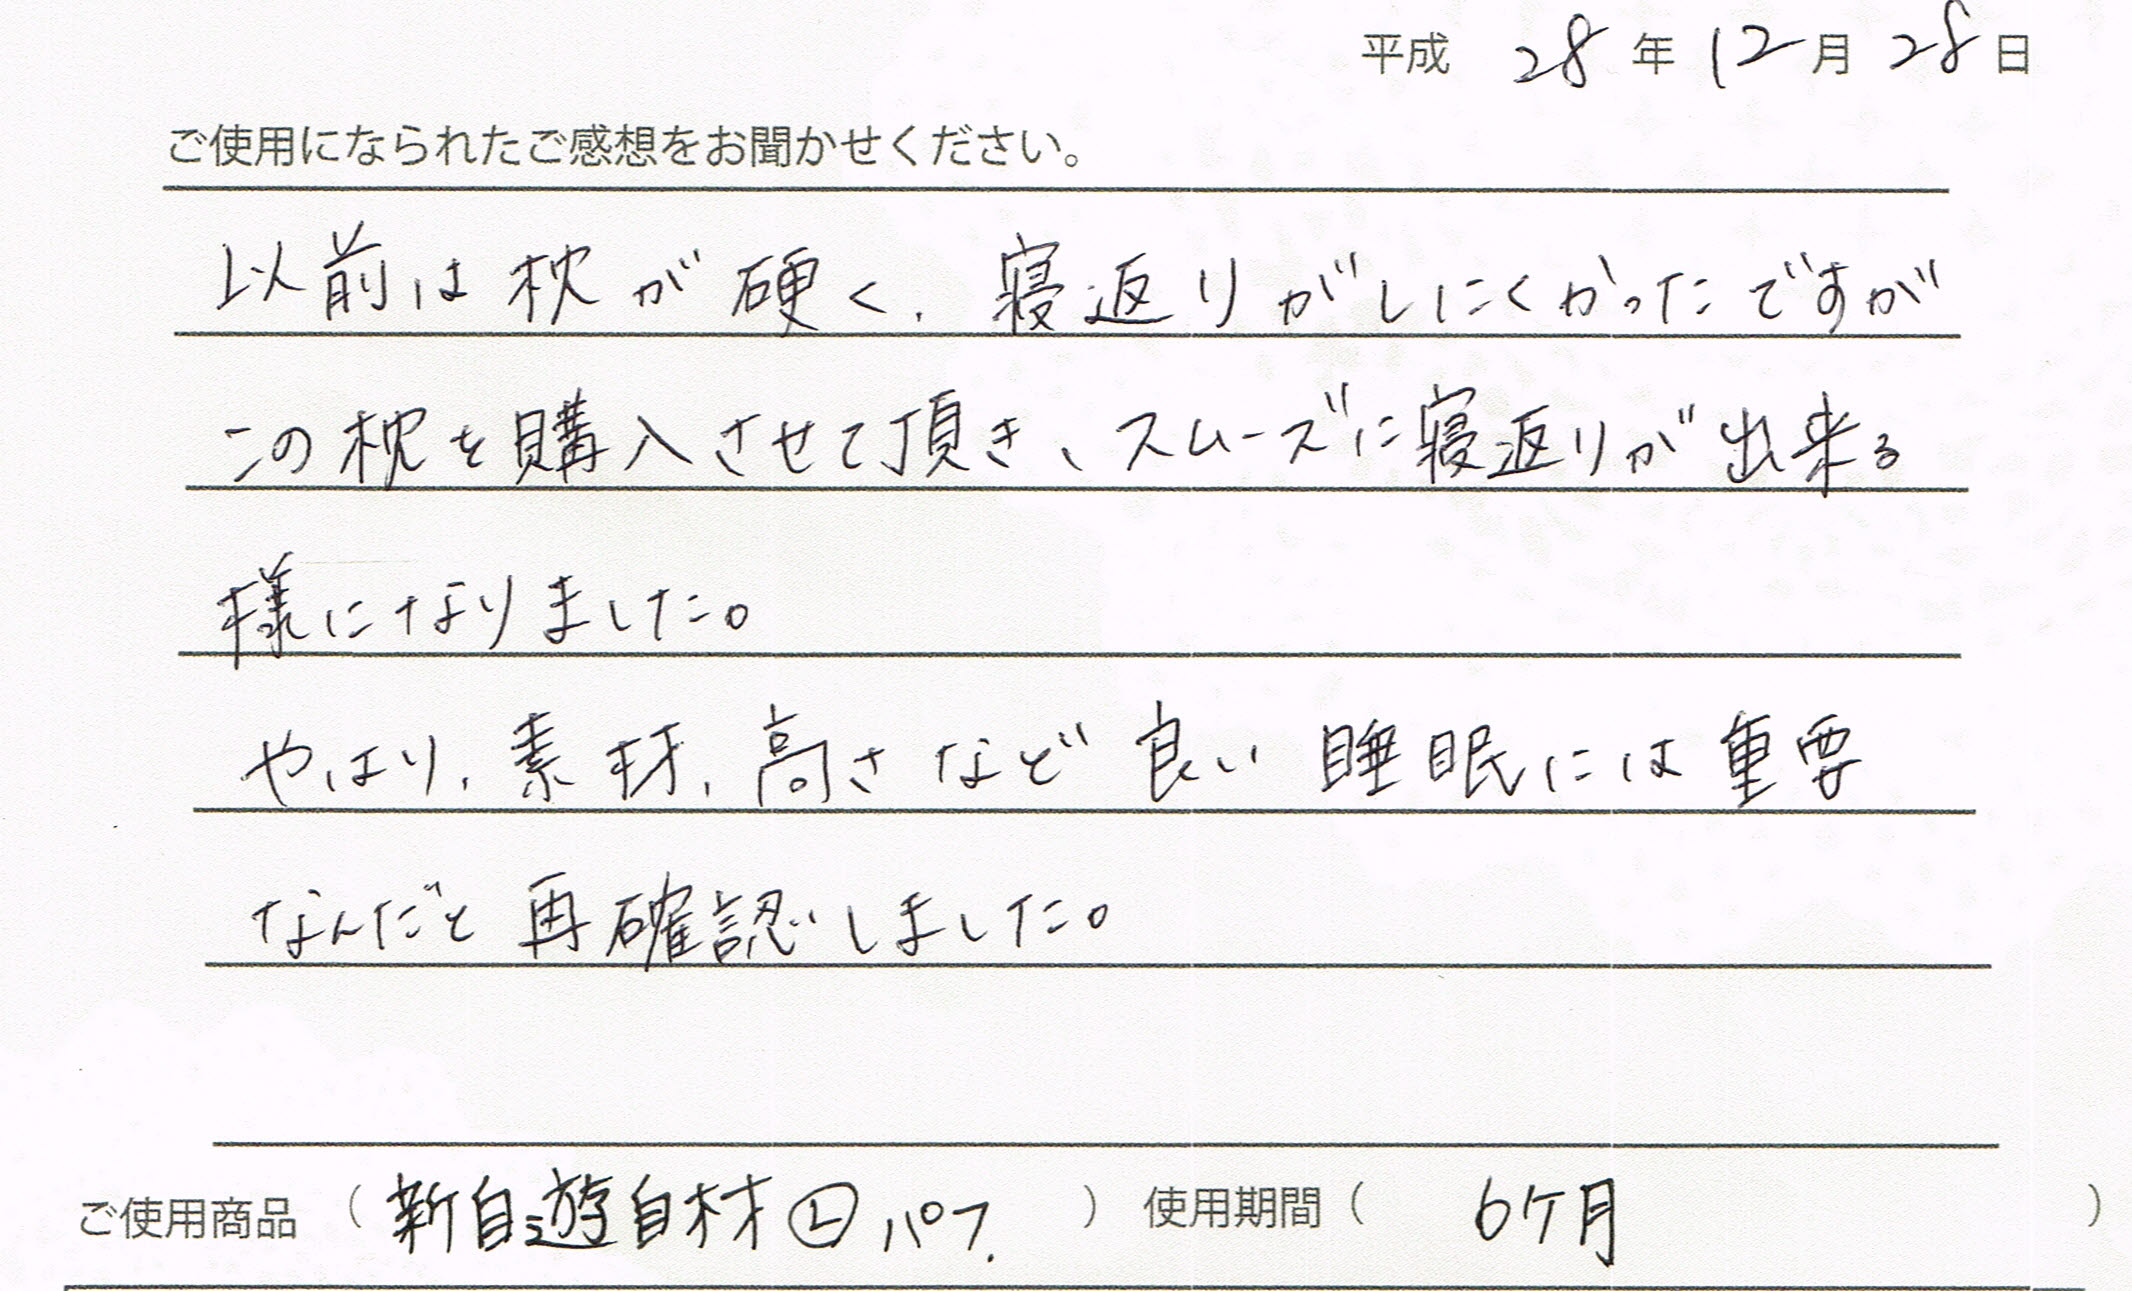 平成 28 年 12 月 28 日
ご使用になられたご感想をお聞かせください。
以前は枕が硬く、寝返りがしにくかったですが
この枕を購入させて頂き、スムーズに寝返りが出来る
様になりました。
やはり、素材、高さなど良い睡眠には重要
なんだと再確認しました。
ご使用商品 ( 新自遊自材 Ⓛ パフ. ) 使用期間 ( 6ケ月 )